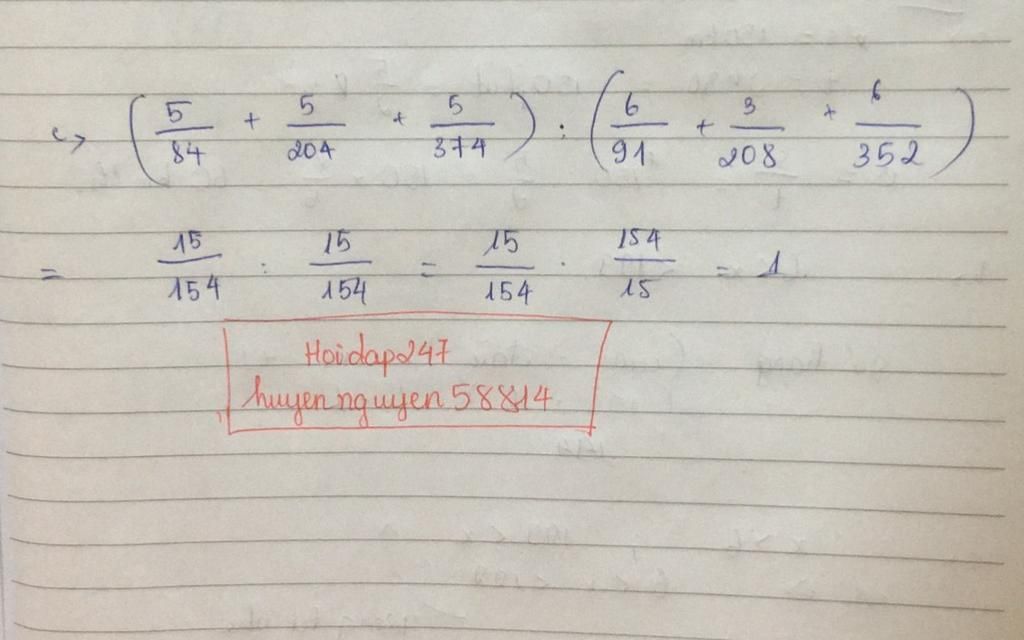 c, (5/84 + 5/204 + 5/374) : (6/91 + 3/208 + 6/352)
= 15/154 : 15/154 = 15/154 . 154/15 = 1
Hoidap247
huyennguyen58814